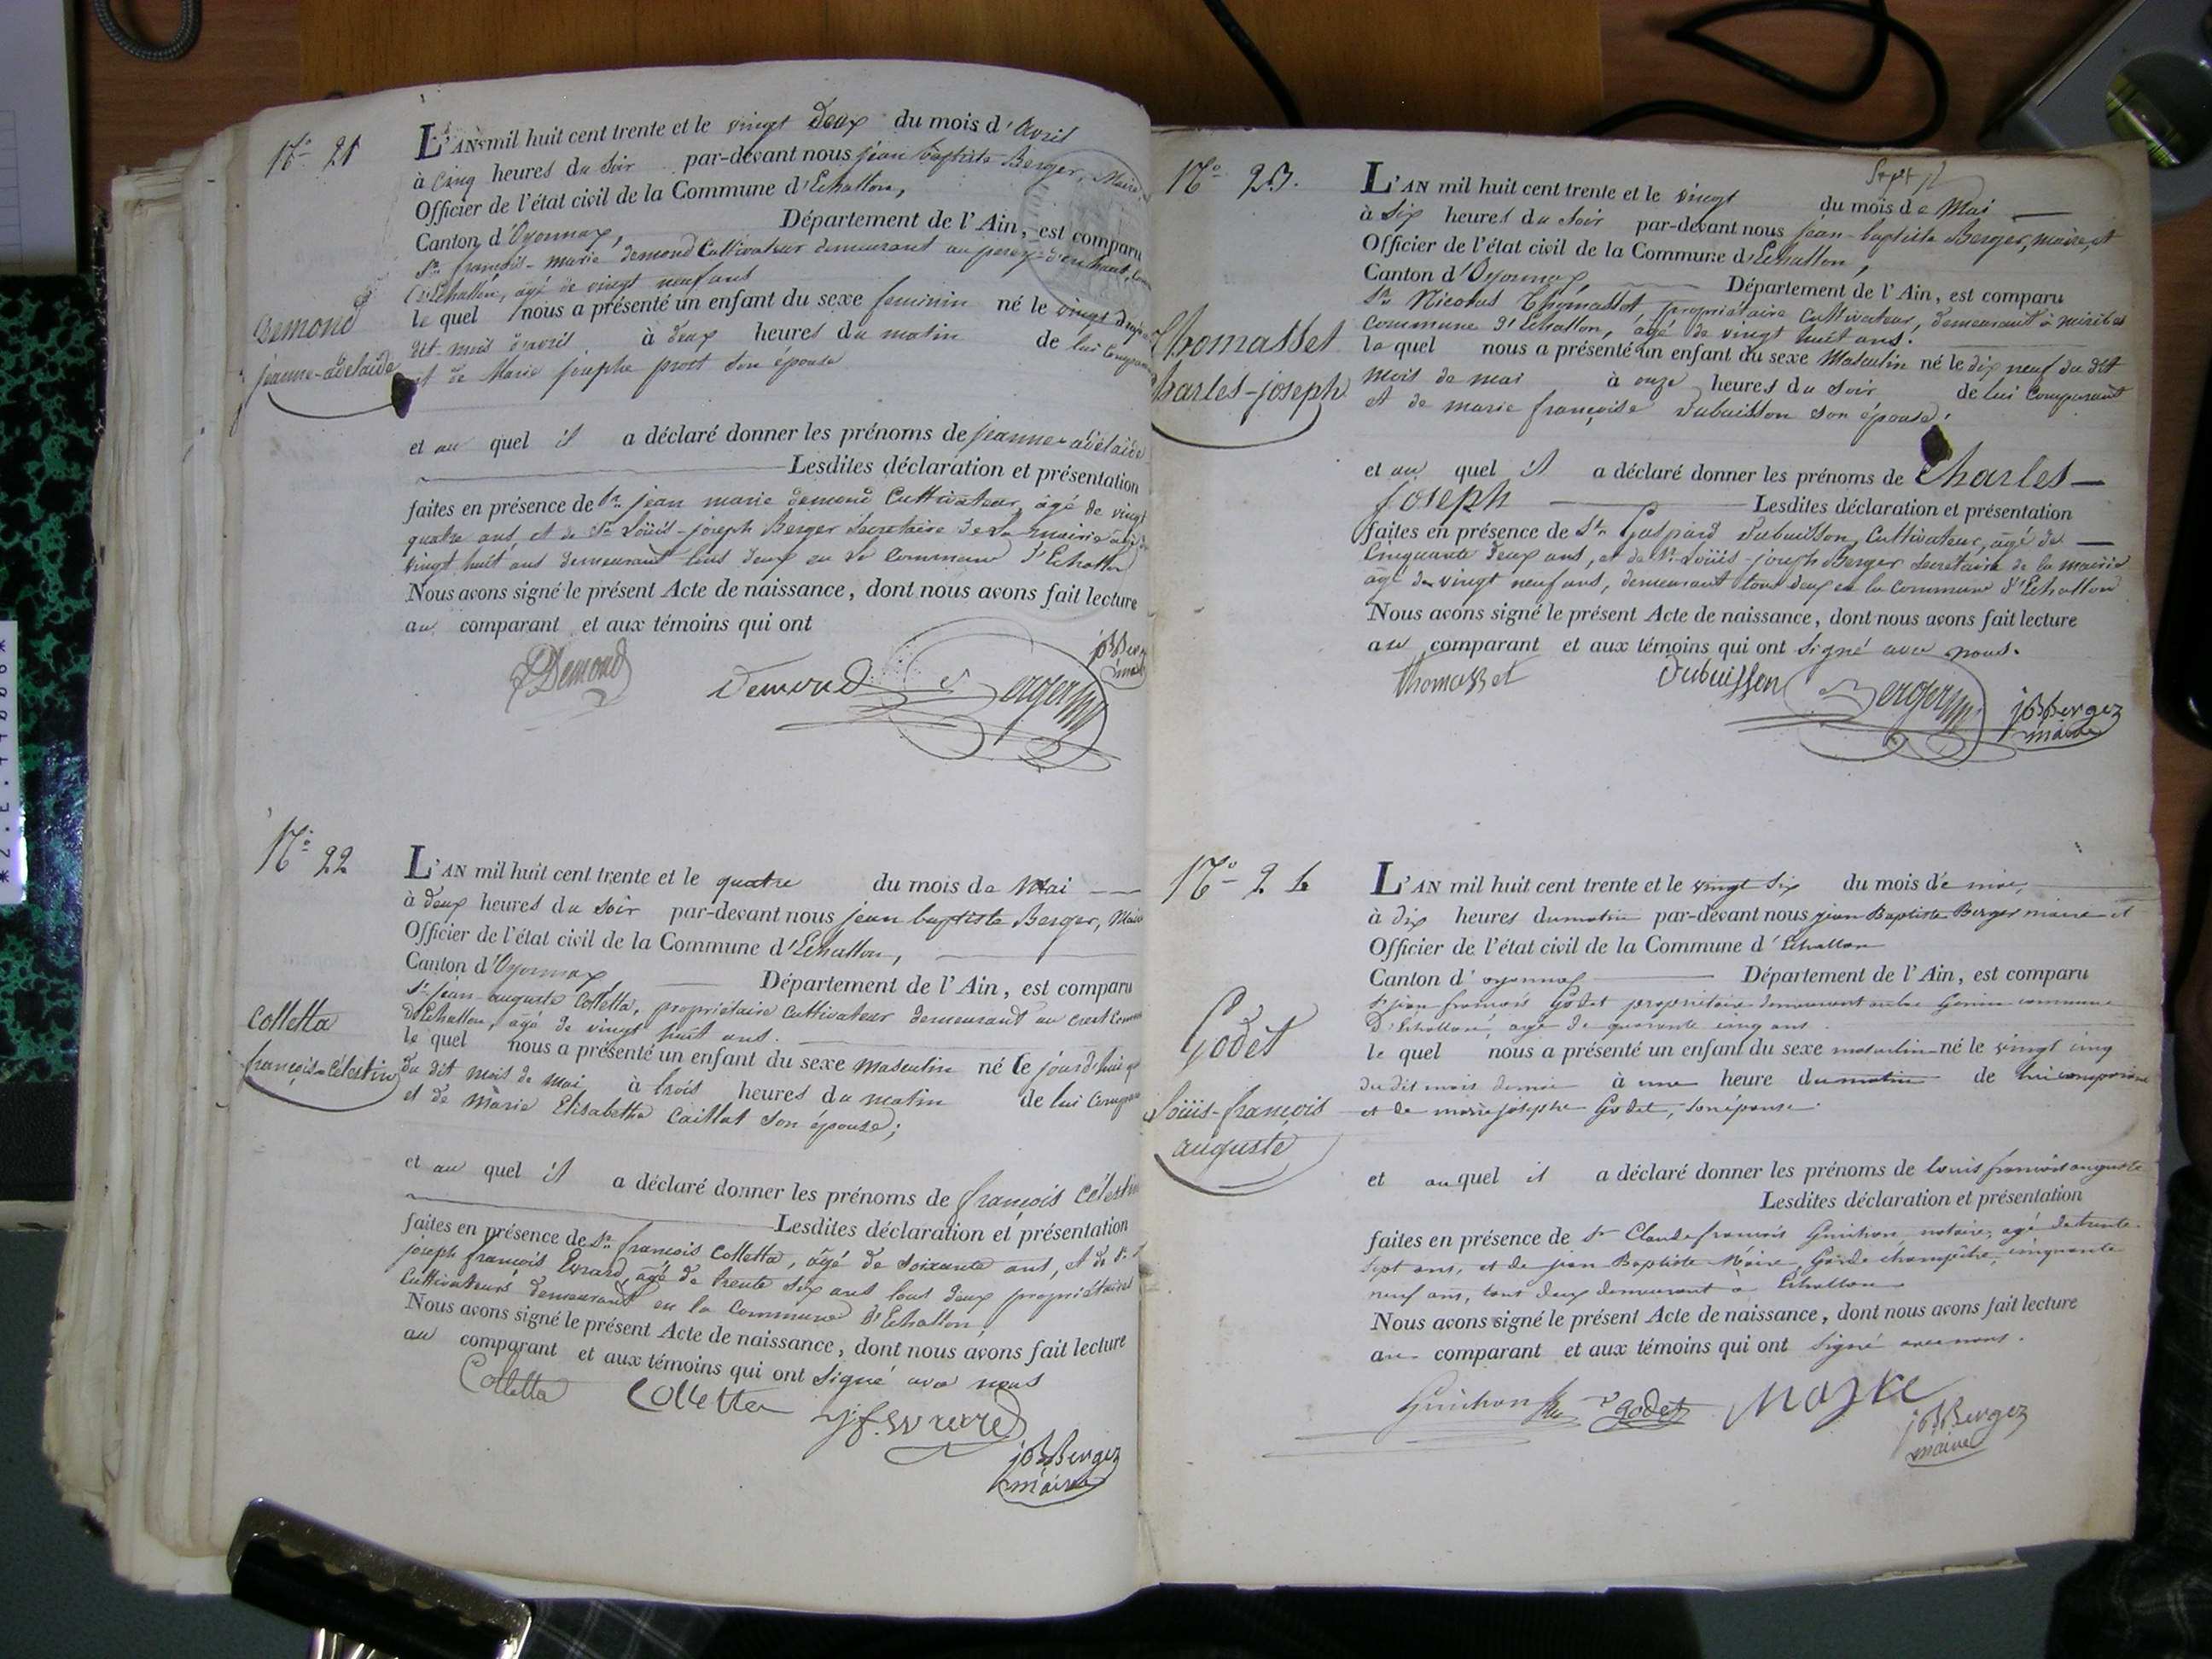 N° 21
L'AN mil huit cent trente et le vingt Deux du mois d'Avril
à Cinq heures du Soir par-devant nous jean baptiste Berger, Maire
Officier de l'état civil de la Commune d'Echallon,
Canton d'Oyonnax, Département de l'Ain, est comparu
Sr françois-marie Demond Cultivateur demeurant au
d'Echallon, âgé de vingt neuf ans
le quel nous a présenté un enfant du sexe feminin né le vingt
dit mois d'avril à deux heures du matin de lui
et de Marie josephe prost Son épouse
Demond
jeanne-adelaïde
et au quel il a déclaré donner les prénoms de jeanne-adelaïde
Lesdites déclaration et présentation
faites en présence de Sr jean marie Demond Cultivateur, âgé de vingt
quatre ans, et de Sr Loüis-joseph Berger Secretaire de La mairie
vingt huit ans demeurant tous deux en La Commune d'Echallon
Nous avons signé le présent Acte de naissance, dont nous avons fait lecture
au comparant et aux témoins qui ont
Demond Demond Berger
N° 22
L'AN mil huit cent trente et le quatre du mois de Mai
à deux heures du soir par-devant nous jean baptiste Berger, Maire
Officier de l'état civil de la Commune d'Echallon,
Canton d'Oyonnax, Département de l'Ain, est comparu
Sr jean-auguste Colletta, propriétaire Cultivateur demeurant au crest
d'Echallon, âgé de vingt huit ans.
le quel nous a présenté un enfant du sexe masculin né le
du dit mois de mai à trois heures du matin de lui
et de Marie Elisabetha Caillat Son épouse;
Colletta
françois-Célestin
et au quel il a déclaré donner les prénoms de françois Célestin
Lesdites déclaration et présentation
faites en présence de Sr françois Colletta, âgé de soixante ans, et de Sr
joseph françois Evrard, âgé de trente six ans tous deux propriétaires
Cultivateurs demeurant en la Commune d'Echallon,
Nous avons signé le présent Acte de naissance, dont nous avons fait lecture
au comparant et aux témoins qui ont signé avec nous
Colletta Colletta
jB Berger
maire
N° 23.
Sept
L'AN mil huit cent trente et le vingt du mois de Mai
à Six heures du Soir par-devant nous jean-baptiste Berger, maire, et
Officier de l'état civil de la Commune d'Echallon,
Canton d'Oyonnax Département de l'Ain, est comparu
Sr Nicolas Thomasset, propriétaire Cultivateur, demeurant à
Commune d'Echallon, âgé de vingt huit ans.
le quel nous a présenté un enfant du sexe Masculin né le dix neuf du dit
mois de mai à onze heures du Soir de lui Comparant
et de marie françoise Dubuisson Son épouse.
Thomasset
Charles-joseph
et au quel il a déclaré donner les prénoms de Charles
joseph Lesdites déclaration et présentation
faites en présence de Sr Gaspard Dubuisson, Cultivateur, âgé de
Cinquante deux ans, et de Sr Loüis-joseph Berger Secretaire de la mairie
âgé de vingt neuf ans, demeurant tous deux en la Commune d'Echallon
Nous avons signé le présent Acte de naissance, dont nous avons fait lecture
au comparant et aux témoins qui ont signé avec nous.
Thomasset Dubuisson Berger jB Berger
maire
N° 24
L'AN mil huit cent trente et le vingt six du mois de mai,
à dix heures du matin par-devant nous jean Baptiste Berger maire et
Officier de l'état civil de la Commune d'Echallon
Canton d'oyonnax Département de l'Ain, est comparu
Sr jean françois Godet propriétaire demeurant commune
d'Echallon, agé de quarante cinq ans.
le quel nous a présenté un enfant du sexe masculin né le vingt cinq
du dit mois de mai à une heure du matin de lui comparant
et de marie josephe Godet, son épouse.
Godet
Loüis-françois
auguste
et au quel il a déclaré donner les prénoms de louis françois auguste
Lesdites déclaration et présentation
faites en présence de Sr Claude françois Guichon, notaire, agé de trente
sept ans, et de jean Baptiste Maire, Garde champêtre, cinquante
neuf ans, tous deux demeurant à Echallon
Nous avons signé le présent Acte de naissance, dont nous avons fait lecture
au comparant et aux témoins qui ont signé avec nous.
Guichon Godet jB Berger
maire